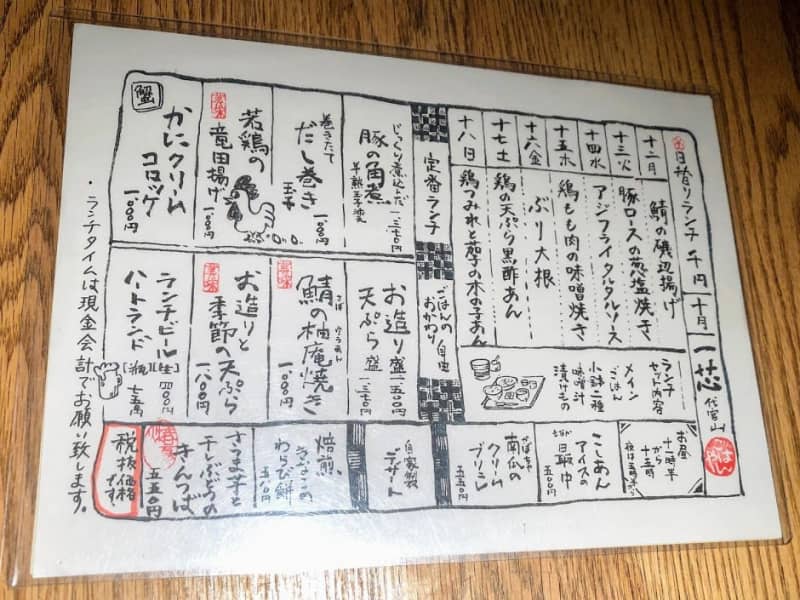 一芯 代官山
ごはんや
日替りランチ 千円 十月
十二月 鯖の磯辺揚げ
十三火 豚ロースの葱塩焼き
十四水 アジフライタルタルソース
十五木 鶏もも肉の味噌焼き
十六金 ぶり大根
十七土 鶏の天ぷら黒酢あん
十八日 鶏つみれと茄子の木の子あん
ランチ
セット内容
メイン
ごはん
小鉢二種
味噌汁
漬けもの
お昼
十一時半
から
十五時
定番ランチ
ごはんの
おかわり
自由
じっくり煮込んだ
豚の角煮
半熟玉子
一三七〇円
巻きたて
だし巻き
玉子
一〇〇〇円
若鶏の
竜田揚げ
一〇〇〇円
蟹
かにクリーム
コロッケ
一〇〇〇円
お造り盛 一五〇〇円
天ぷら盛 一三七〇円
鯖の柚庵焼き
さば ゆうあん
一〇〇〇円
お造りと
季節の天ぷら
一八〇〇円
ランチビール[生]四〇〇円
ハートランド[瓶]七五〇
自家製
デザート
こしあん
アイスの
最中
五五〇円
南瓜の
クリーム
ブリュレ
五五〇円
焙煎
きなこの
わらび餅
五八〇円
さつま芋と
干しぶどうの
きんつば
五五〇円
税抜価格
です。
・ランチタイムは現金会計でお願い致します。